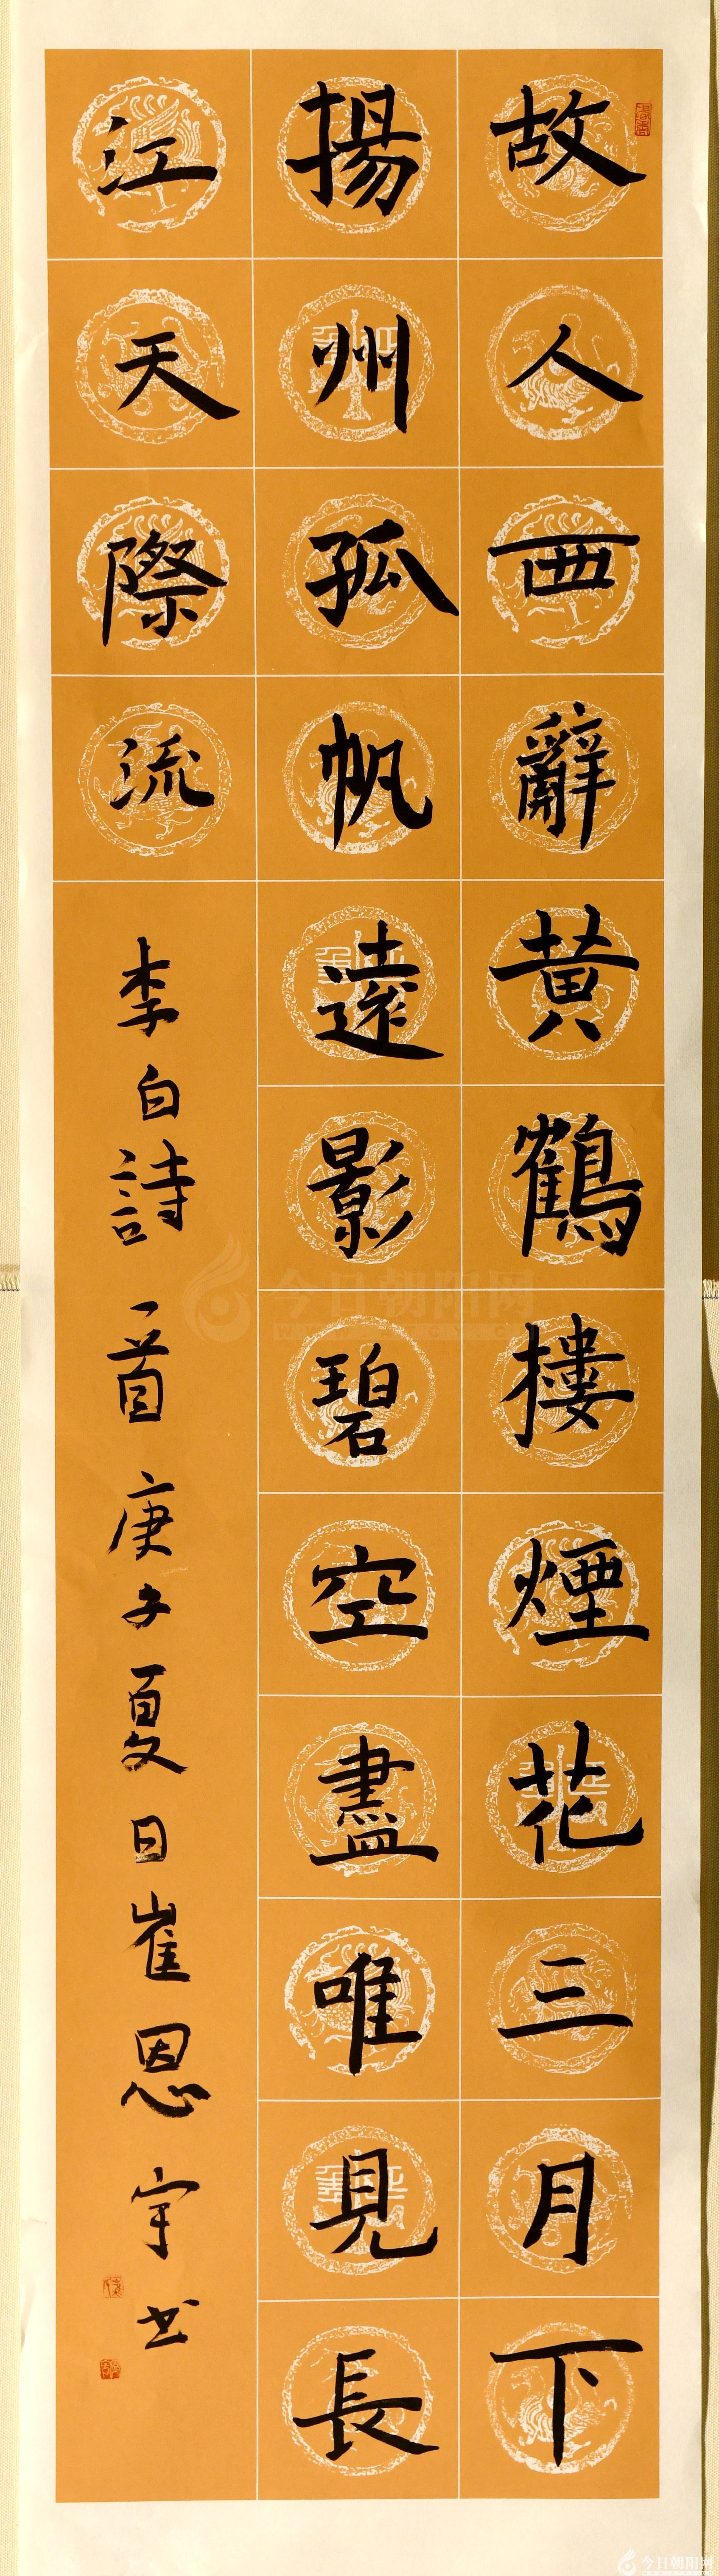 故人西辭黄鶴摟煙花三月下
揚州孤帆遠影碧空盡唯見長
江天際流
李白詩一首庚子夏日崔恩宇书
今日朝阳网
今日朝阳网